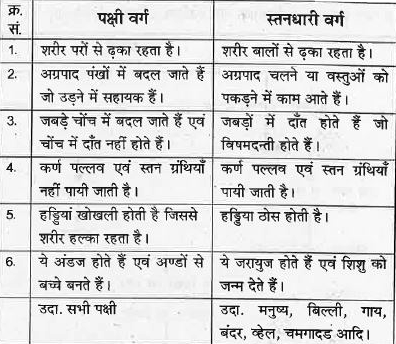 क्र. सं. पक्षी वर्ग स्तनधारी वर्ग
1. शरीर परों से ढ़का रहता है। शरीर बालों से ढ़का रहता है।
2. अग्रपाद पंखों में बदल जाते हैं अग्रपाद चलने या वस्तुओं को
जो उड़ने में सहायक हैं। पकड़ने में काम आते हैं।
3. जबड़े चोंच में बदल जाते हैं एवं जबड़ों में दाँत होते हैं जो
चोंच में दाँत नहीं होते हैं। विषमदन्ती होते हैं।
4. कर्ण पल्लव एवं स्तन ग्रंथियाँ कर्ण पल्लव एवं स्तन ग्रंथियाँ
नहीं पायी जाती है। पायी जाती है।
5. हड्डियां खोखली होती है जिससे हड्डिया ठोस होती है।
शरीर हल्का रहता है।
6. ये अंडज होते हैं एवं अण्डों से ये जरायुज होते हैं एवं शिशु को
बच्चे बनते हैं। जन्म देते हैं।
उदा. सभी पक्षी उदा. मनुष्य, बिल्ली, गाय,
बंदर, व्हेल, चमगादड आदि।